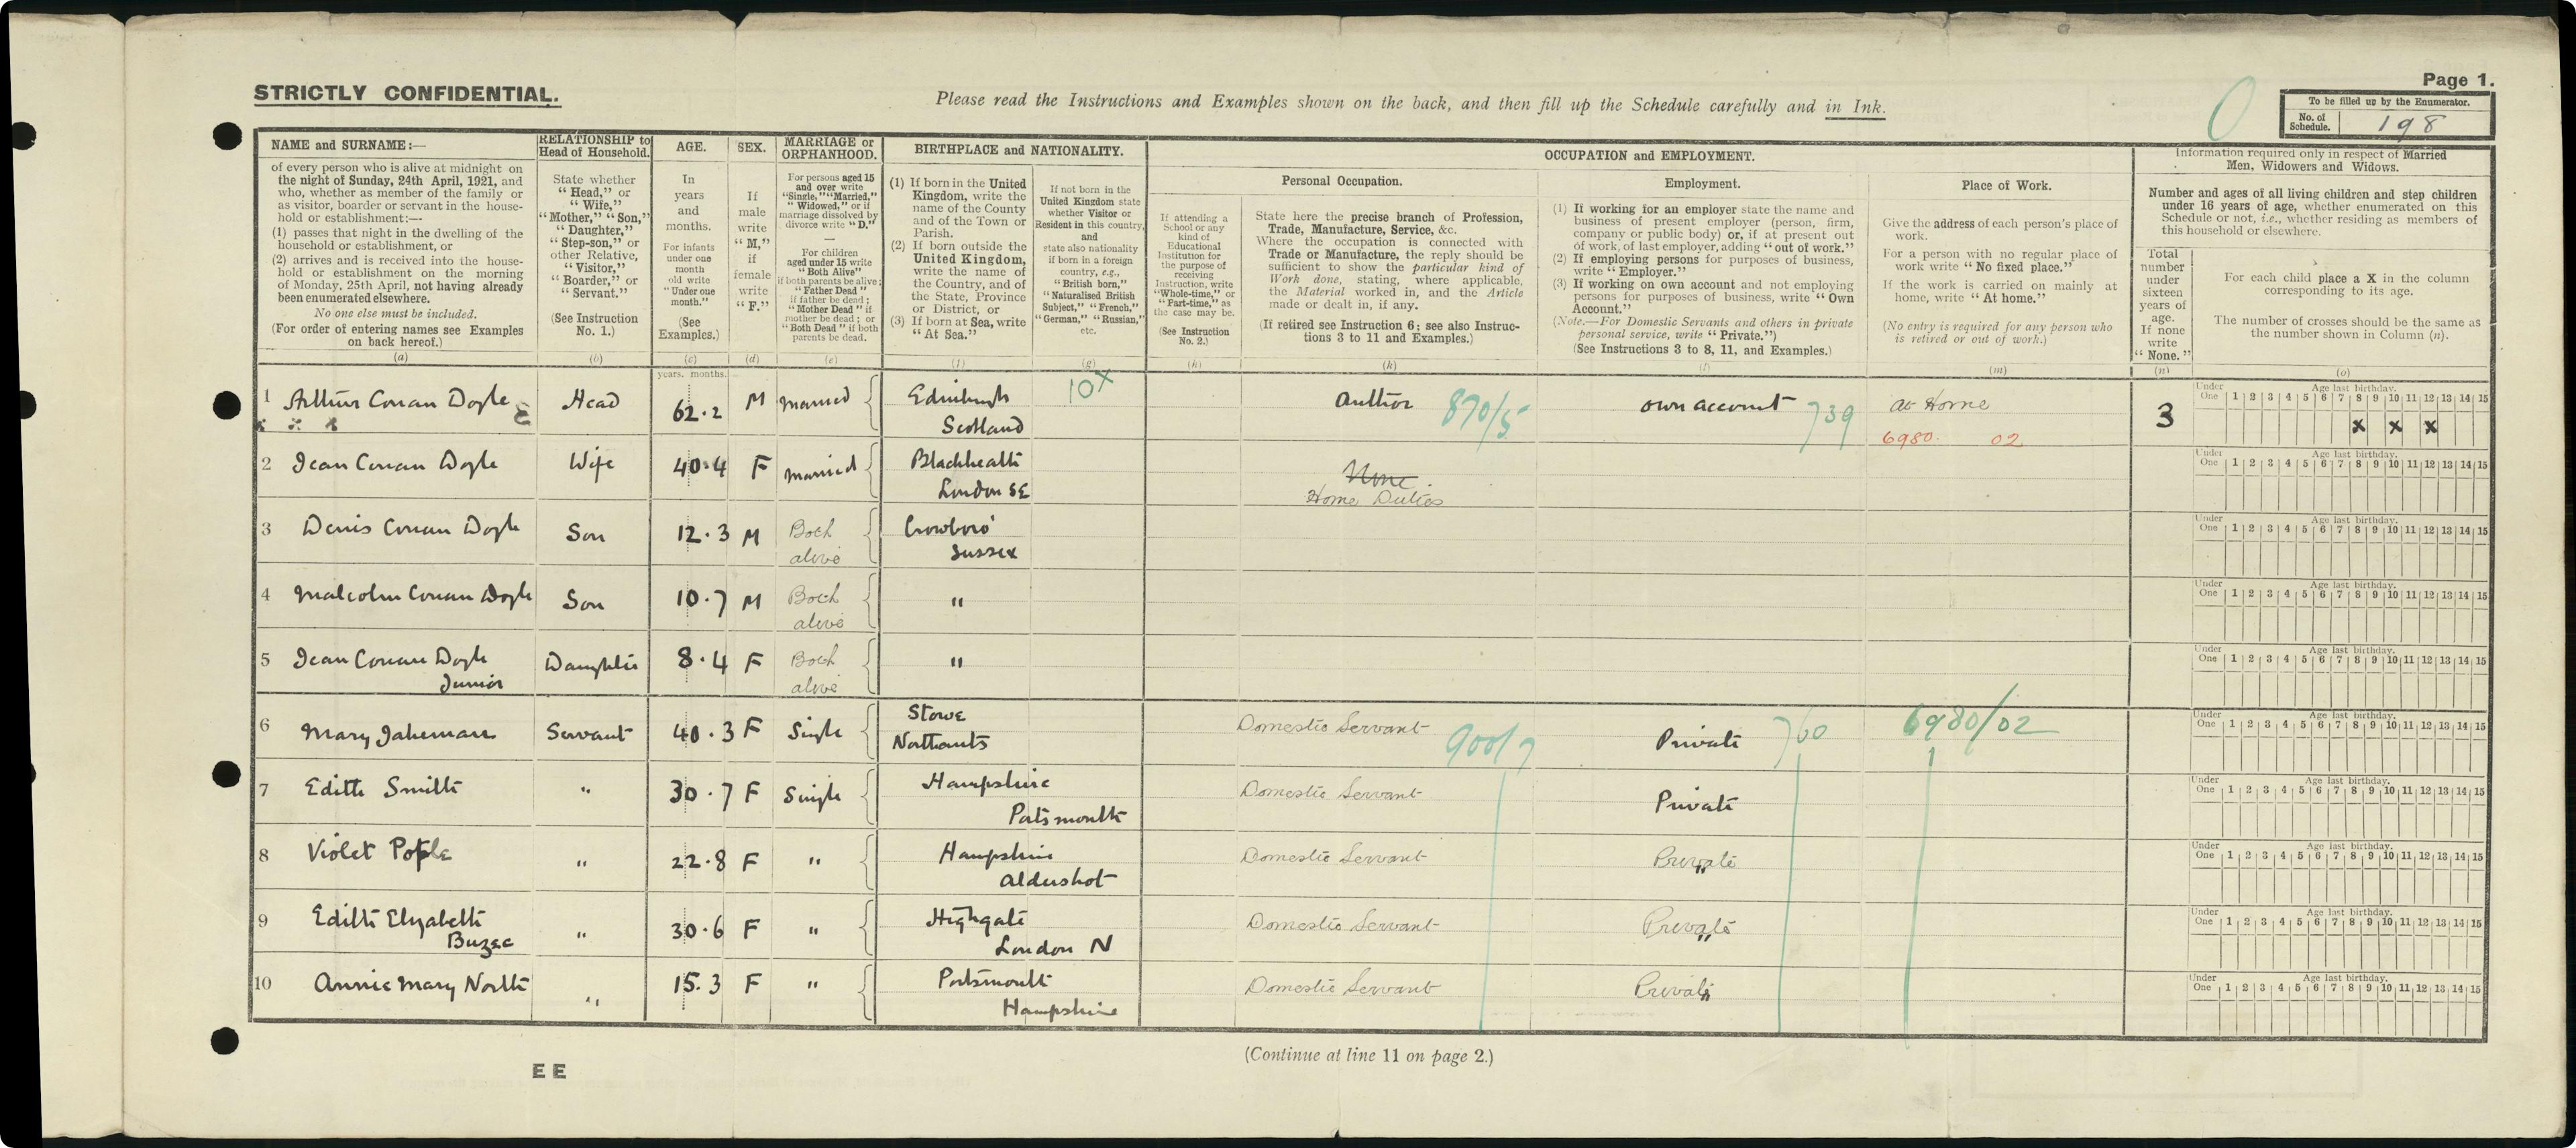 STRICTLY CONFIDENTIAL.
Please read the Instructions and Examples shown on the back, and then fill up the Schedule carefully and in Ink.
Page 1.
To be filled up by the Enumerator.
No. of Schedule. 198
NAME and SURNAME:—
of every person who is alive at midnight on
the night of Sunday, 24th April, 1921, and
who, whether as member of the family or
as visitor, boarder or servant in the house-
hold or establishment:—
(1) passes that night in the dwelling of the
household or establishment, or
(2) arrives and is received into the house-
hold or establishment on the morning
of Monday, 25th April, not having already
been enumerated elsewhere.
No one else must be included.
(For order of entering names see Examples
on back hereof.)
(a)
RELATIONSHIP to
Head of Household.
State whether
"Head," or
"Wife,"
"Mother," "Son,"
"Daughter,"
"Step-son," or
other Relative,
"Visitor,"
"Boarder," or
"Servant."
(See Instruction
No. 1.)
(b)
AGE.
In
years
and
months.
For infants
under one
month
old write
"Under one
month."
(See
Examples.)
(c)
SEX.
If
male
write
"M,"
if
female
write
"F."
(d)
MARRIAGE or
ORPHANHOOD.
For persons aged 15
and over write
"Single," "Married,"
"Widowed," or if
marriage dissolved by
divorce write "D."
—
For children
aged under 15 write
"Both Alive"
if both parents be alive;
"Father Dead"
if father be dead;
"Mother Dead" if
mother be dead; or
"Both Dead" if both
parents be dead.
(e)
BIRTHPLACE and NATIONALITY.
(1) If born in the United
Kingdom, write the
name of the County
and of the Town or
Parish.
(2) If born outside the
United Kingdom,
write the name of
the Country, and of
the State, Province
or District, or
(3) If born at Sea, write
"At Sea."
(f)
If not born in the
United Kingdom state
whether Visitor or
Resident in this country,
and
state also nationality
if born in a foreign
country, e.g.,
"British born,"
"Naturalised British
Subject," "French,"
"German," "Russian,"
etc.
(g)
OCCUPATION and EMPLOYMENT.
Personal Occupation.
If attending a
School or any
kind of
Educational
Institution for
the purpose of
receiving
Instruction, write
"Whole-time," or
"Part-time," as
the case may be.
(See Instruction
No. 2.)
(h)
State here the precise branch of Profession,
Trade, Manufacture, Service, &c.
Where the occupation is connected with
Trade or Manufacture, the reply should be
sufficient to show the particular kind of
Work done, stating, where applicable,
the Material worked in, and the Article
made or dealt in, if any.
(If retired see Instruction 6; see also Instruc-
tions 3 to 11 and Examples.)
(k)
Employment.
(1) If working for an employer state the name and
business of present employer (person, firm,
company or public body) or, if at present out
of work, of last employer, adding "out of work."
(2) If employing persons for purposes of business,
write "Employer."
(3) If working on own account and not employing
persons for purposes of business, write "Own
Account."
(Note.—For Domestic Servants and others in private
personal service, write "Private.")
(See Instructions 3 to 8, 11, and Examples.)
(l)
Place of Work.
Give the address of each person's place of
work.
For a person with no regular place of
work write "No fixed place."
If the work is carried on mainly at
home, write "At home."
(No entry is required for any person who
is retired or out of work.)
(m)
Information required only in respect of Married
Men, Widowers and Widows.
Number and ages of all living children and step children
under 16 years of age, whether enumerated on this
Schedule or not, i.e., whether residing as members of
this household or elsewhere.
Total
number
under
sixteen
years of
age.
If none
write
"None."
(n)
For each child place a X in the column
corresponding to its age.
The number of crosses should be the same as
the number shown in Column (n).
(o)
years. months.
1 Arthur Conan Doyle Head 62.2 M Married Edinburgh 10x Author 870/5 own account 739 At Home 3
Scotland 6980 02
Under One Age last birthday. 1 2 3 4 5 6 7 8 9 10 11 12 13 14 15
x x x
2 Jean Conan Doyle Wife 40.4 F Married Blackheath None
London SE Home Duties
Under One Age last birthday. 1 2 3 4 5 6 7 8 9 10 11 12 13 14 15
3 Denis Conan Doyle Son 12.3 M Both alive Crowboro'
Sussex
Under One Age last birthday. 1 2 3 4 5 6 7 8 9 10 11 12 13 14 15
4 Malcolm Conan Doyle Son 10.7 M Both alive "
Under One Age last birthday. 1 2 3 4 5 6 7 8 9 10 11 12 13 14 15
5 Jean Conan Doyle Daughter 8.4 F Both alive "
Junior
Under One Age last birthday. 1 2 3 4 5 6 7 8 9 10 11 12 13 14 15
6 Mary Jakeman Servant 40.3 F Single Stowe Domestic Servant 900/7 Private 760 6980/02
Northants
Under One Age last birthday. 1 2 3 4 5 6 7 8 9 10 11 12 13 14 15
7 Edith Smith " 30.7 F Single Hampshire Domestic Servant Private
Portsmouth
Under One Age last birthday. 1 2 3 4 5 6 7 8 9 10 11 12 13 14 15
8 Violet Pople " 22.8 F " Hampshire Domestic Servant Private
Aldershot
Under One Age last birthday. 1 2 3 4 5 6 7 8 9 10 11 12 13 14 15
9 Edith Elizabeth " 30.6 F " Highgate Domestic Servant Private
London N
Under One Age last birthday. 1 2 3 4 5 6 7 8 9 10 11 12 13 14 15
10 Annie Mary North " 15.3 F " Portsmouth Domestic Servant Private
Hampshire
Under One Age last birthday. 1 2 3 4 5 6 7 8 9 10 11 12 13 14 15
(Continue at line 11 on page 2.)
E E